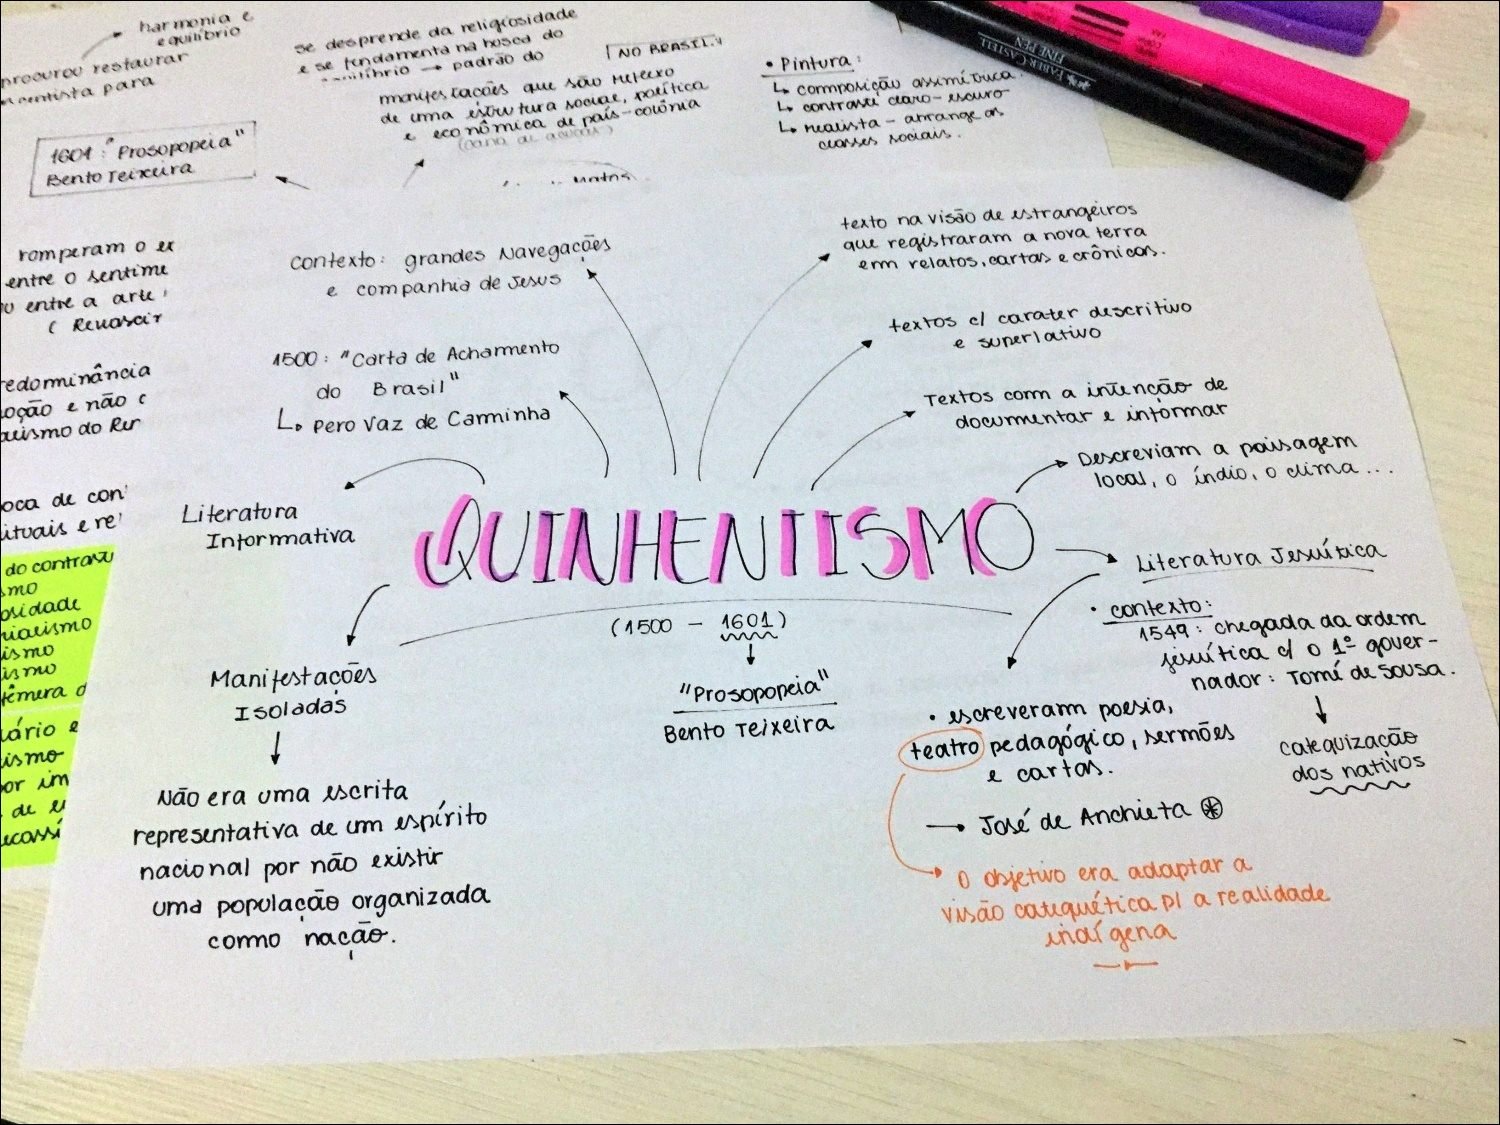 harmonia e
equilíbrio
procurou restaurar
para
se desprende da religiosidade
e se fundamenta na busca do
equilíbrio → padrão do
NO BRASIL:
manifestações que são reflexo
de uma estrutura social, política
e econômica de país-colônia
(cana de açúcar)
• Pintura:
↳ composição assimétrica.
↳ contraste claro-escuro
↳ realista - abrange as
classes sociais.
FABER-CASTELL
FINE PEN
1601: "Prosopopeia"
Bento Teixeira
Matos
romperam o ex
entre o sentime
entre a arte
( Renascir
redominância
oção e não c
alismo do Ren
oca de con
ituais e re
do contraste
smo
osidade
rialismo
ismo
ismo
fêmera d
lário e
ismo
por im
de e
ecassi
contexto: grandes Navegações
e companhia de Jesus
1500: "Carta de Achamento
do Brasil"
↳ Pero Vaz de Carminha
texto na visão de estrangeiros
que registraram a nova terra
em relatos, cartas e crônicas.
textos c/ carater descritivo
e superlativo
Textos com a intenção de
documentar e informar
Descreviam a paisagem
local, o índio, o clima...
Literatura
Informativa
QUINHENTISMO
(1500 - 1601)
"Prosopopeia"
Bento Teixeira
Manifestações
Isoladas
Não era uma escrita
representativa de um espírito
nacional por não existir
uma população organizada
como nação.
Literatura Jesuítica
• contexto:
1549: chegada da ordem
jesuítica c/ o 1º gover-
nador: Tomé de Sousa.
catequização
dos nativos
• escreveram poesia,
teatro pedagógico, sermões
e cartas.
→ José de Anchieta
O objetivo era adaptar a
visão catequética p/ a realidade
indígena